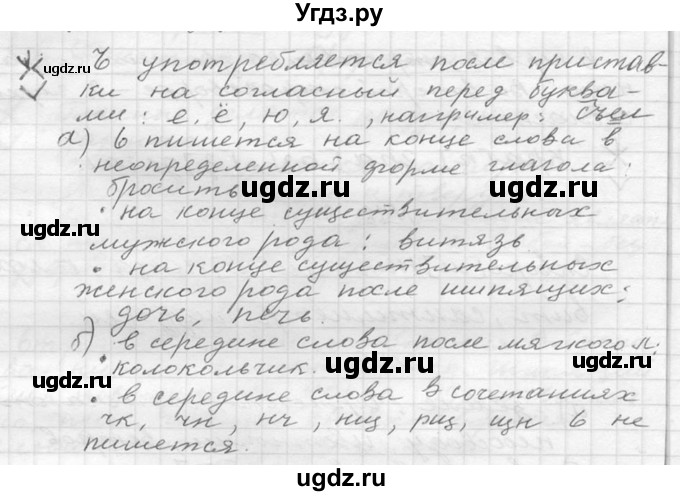 Угдз.ру
Ъ употребляется после пристав-
ки на согласный перед буква-
ми: е, ё, ю, я. , например: съел
а) ь пишется на конце слова в
неопределенной форме глагола:
бросить
ugdz.ru ugdz.ru
• на конце существительных
мужского рода: витязь
• на конце существительных
женского рода после шипящих:
дочь, печь.
б) в середине слова после мягкого л:
• колокольчик.
ugdz.ru ugdz.ru
• в середине слова в сочетаниях
чк, чн, нч, нщ, рщ, щн ь не
пишется.
ugdz.ru ugdz.ru